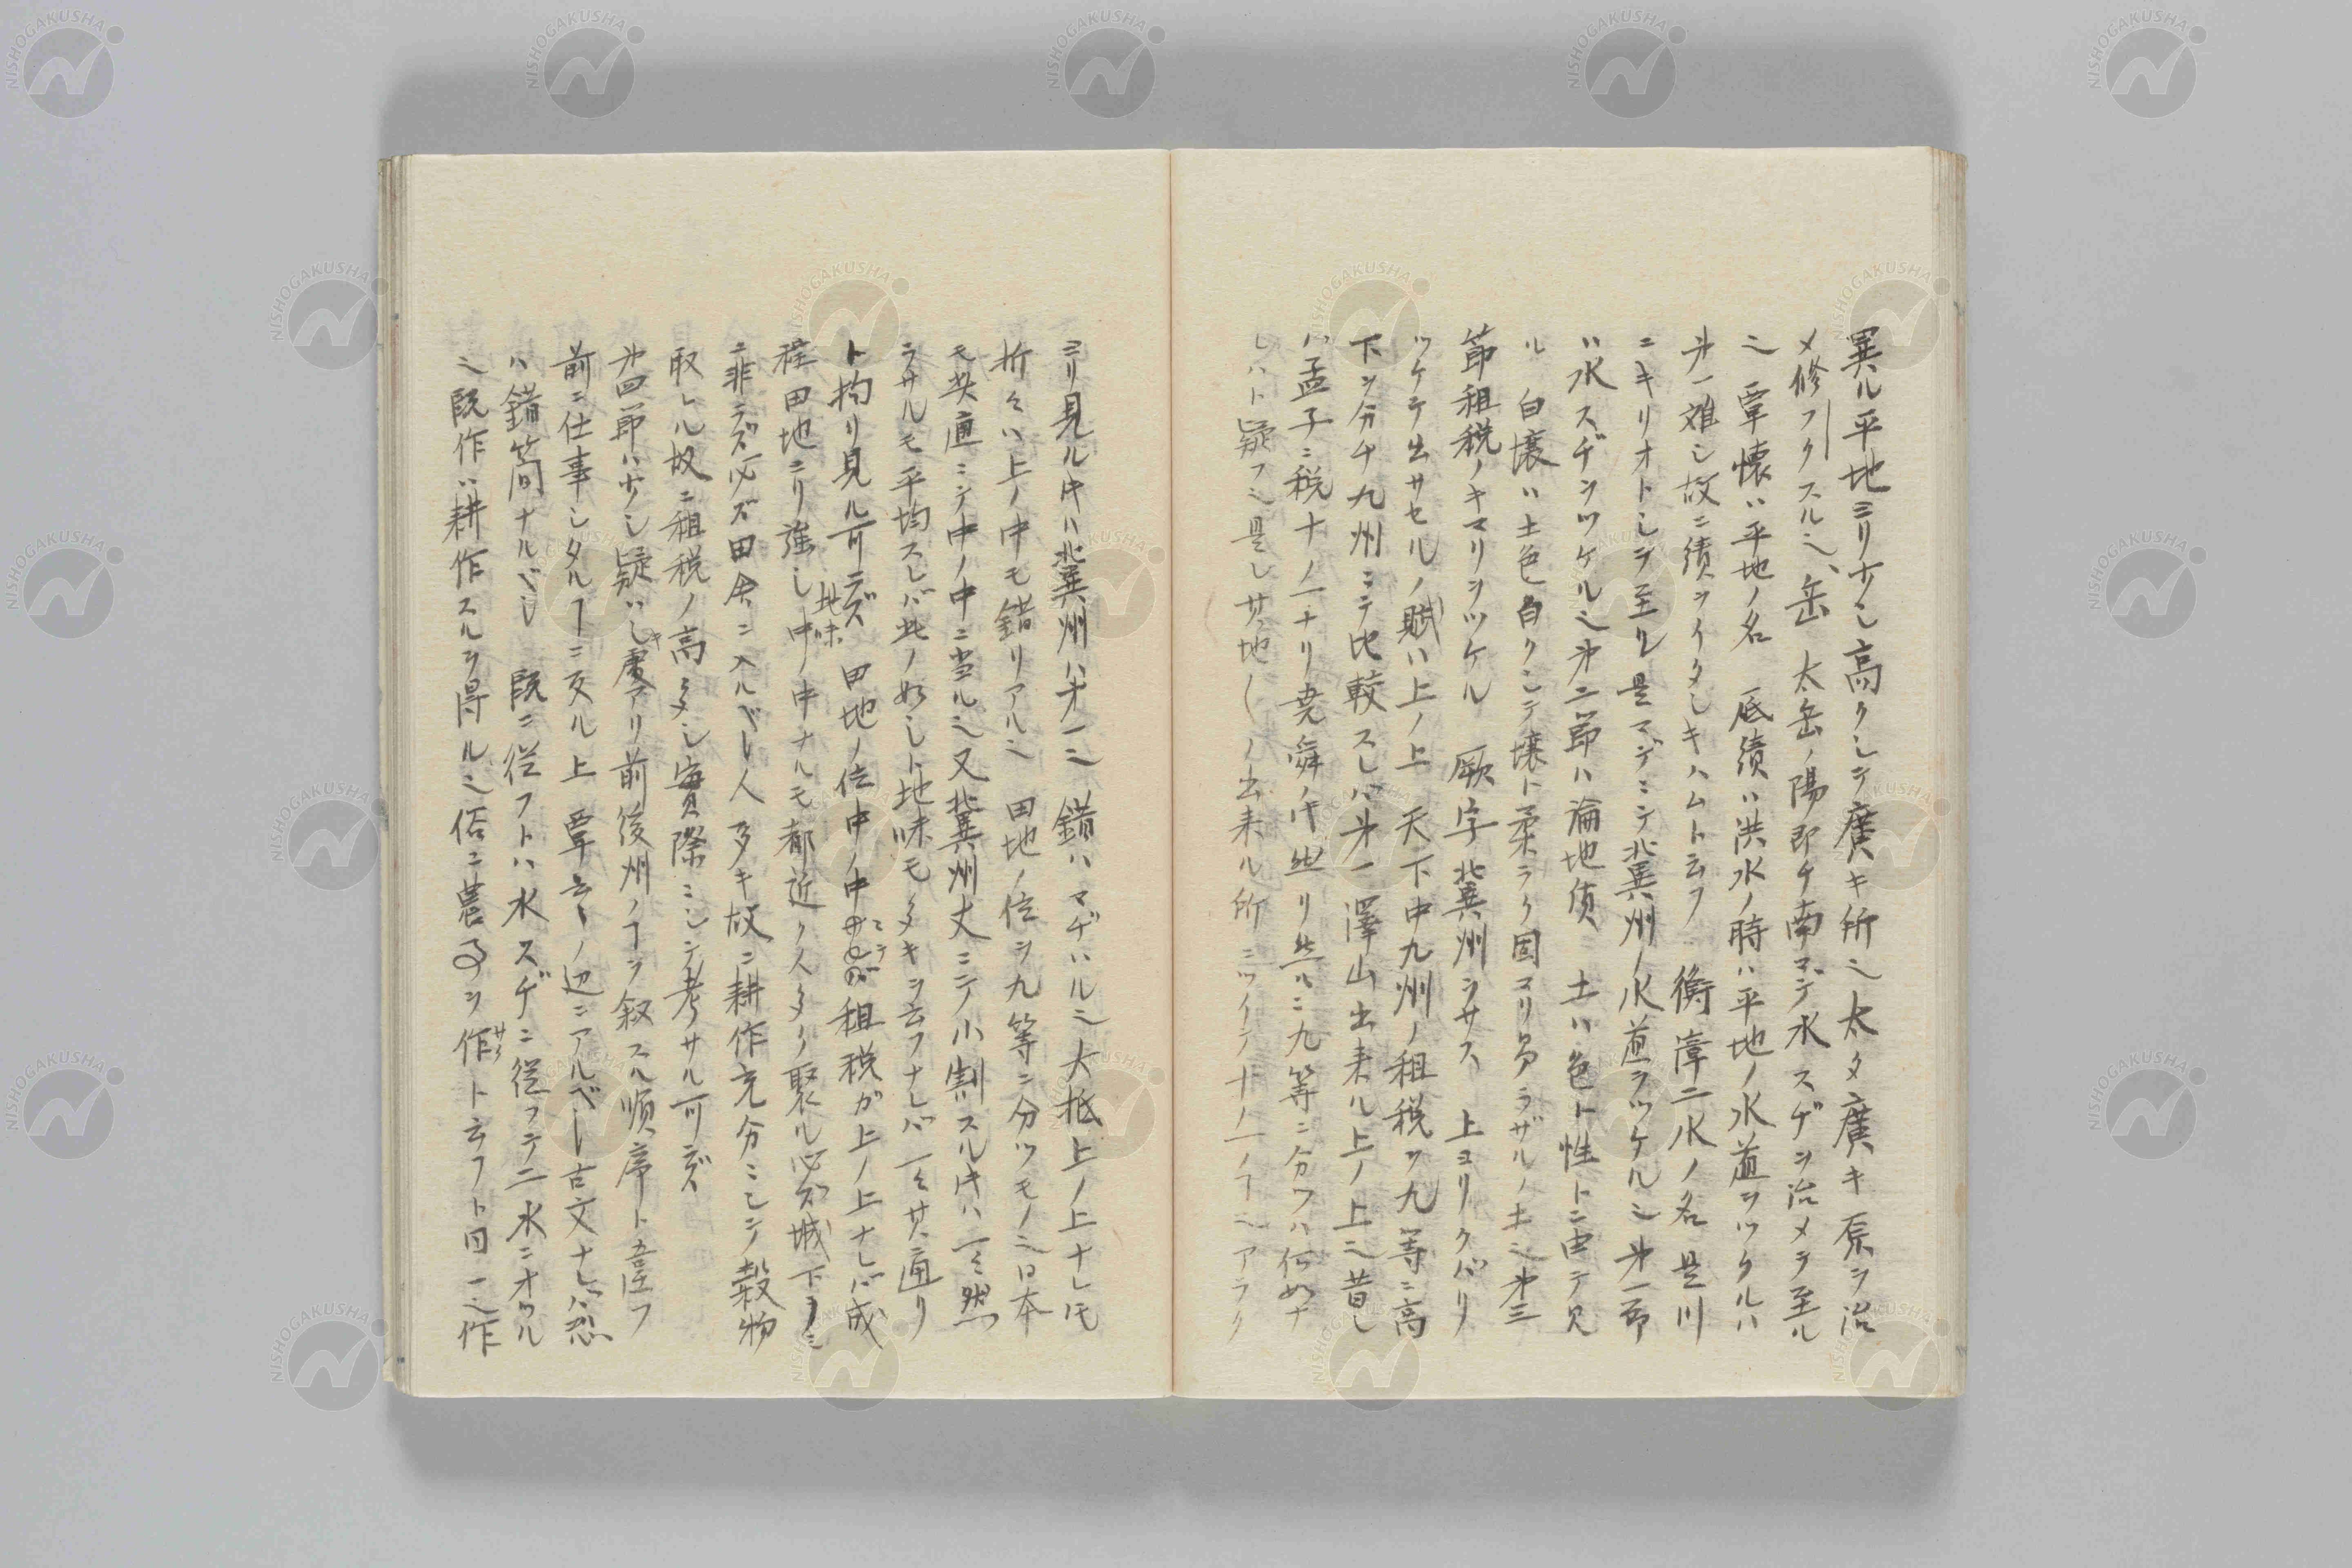 異ル平地ヨリ少シ高クシテ廣キ所也太タ廣キ原ヲ治
メ修フクスル也、岳 太岳ノ陽即チ南マデ水スヂヲ治メテ至ル
也 覃懷ハ平地ノ名 底績ハ洪水ノ時ハ平地ノ水道ヲツクルハ
第一難シ故ニ績ヲイタシキハムト云フ 衡漳二水ノ名是川
ニキリオトシテ至ル是マデニテ冀州ノ水道ヲツケル也第一節
ハ水スヂヲツケル也第二節ハ論地質 土ハ色ト性トニ由テ見
ル 白壤ハ土色白クシテ壤ト柔ラク固マリ居ラザルノ土也第三
節租税ノキマリヲツケル 厥字冀州ヲサス 上ヨリクバリ
ツケテ出サセルノ賦ハ上ノ上 天下中九州ノ租税ヲ九等ニ高
下ヲ分チ九州ニテ比較スレバ第一澤山出来ル上ノ上也昔シ
ハ孟子ニ税十ノ一ナリ堯舜ノ時此リ此ルニ九等ニ分ツハ何如ナ
レハト疑フ也是レ其地〱ノ出来ル所ニツイテ十ノ一ノヿ也アラク
ヨリ見ル時ハ冀州ハ第一也 錯ハマヂハル也大抵上ノ上ナレ圧
折々ハ上ノ中モ錯リアル也 田地ノ位ヲ九等ニ分ツモノ也日本
モ共通ニシテ中ノ中ニ当ル也又冀州丈ニテ小割スル時ハ一々然
ラサルモ平均スレバ此ノ如シト地味モ多キヲ云フナレバ一々其通リ
ト拘リ見ル可ラズ 田地ノ位中ノ中ニテ租税ガ上ノ上ナレバ成
程田地ヨリ強シ地味中ノ中ナルモ都近ク人多ク聚ル必ズ城下ヨミ
ニ非ラズ必ズ田舎ニ入ルベレ人多キ故ニ耕作充分ニシテ穀物
取レル故ニ租税ノ高多シ實際ニシテ考サル可ラズ
第四節ハ少シ疑ハシキ處アリ前後州ノヿヲ叙スル順序ト違フ
前ニ仕事シタルヿニ反ル上 覃云々ノ辺ニアルベレ古文ナレハ恐
ハ錯簡ナルベレ 既ニ從フトハ水スヂニ從フテ二水ニオツル
也既作ハ耕作スルヲ得ル也俗ニ農事ヲ作サクト云フト同一也作